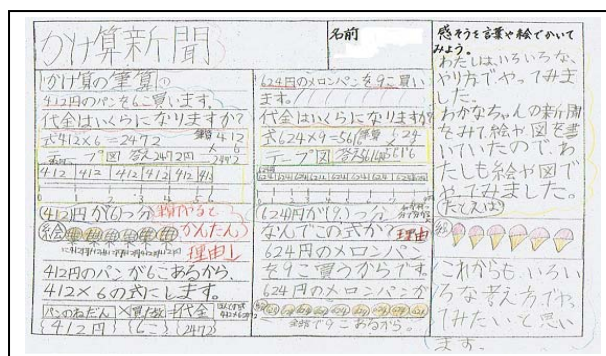 かけ算新聞
名前
かけ算の筆算①
412円のパンを6こ買います。
代金はいくらになりますか?
式412×6=2472
筆算 412
× 6
2472
テープ図 答え2472円
412 412 412 412 412 412
0 1 2 3 4 5 6
412円が(6)つ分
かんたん
絵
理由↓
412円のパンが6こあるから、
412×6の式にします。
パンのねだん×買う数=代金
(412円) (6こ) (2472)
624円のメロンパンを9こ買い
ます。
代金はいくらになりますか?
式624×9=5616
筆算 624
× 9
5616
テープ図 答え5616
624 624 624 624 624 624 624 624 624
624円が(9)つ分
なんでこの式か?
理由
624円のメロンパン
を9こ買うからです。
624円のメロンパンが
で9こあるから。
感そうを言葉や絵でかいて
みよう。
わたしは、いろいろな、
やり方でやってみま
した。
わかなちゃんの新聞
をみて絵や図を書
いていたのでわ
たしも絵や図で
やってみました。
(たとえば)
絵
これからも、いろい
ろな考え方でや
てみたいと思い
ます。